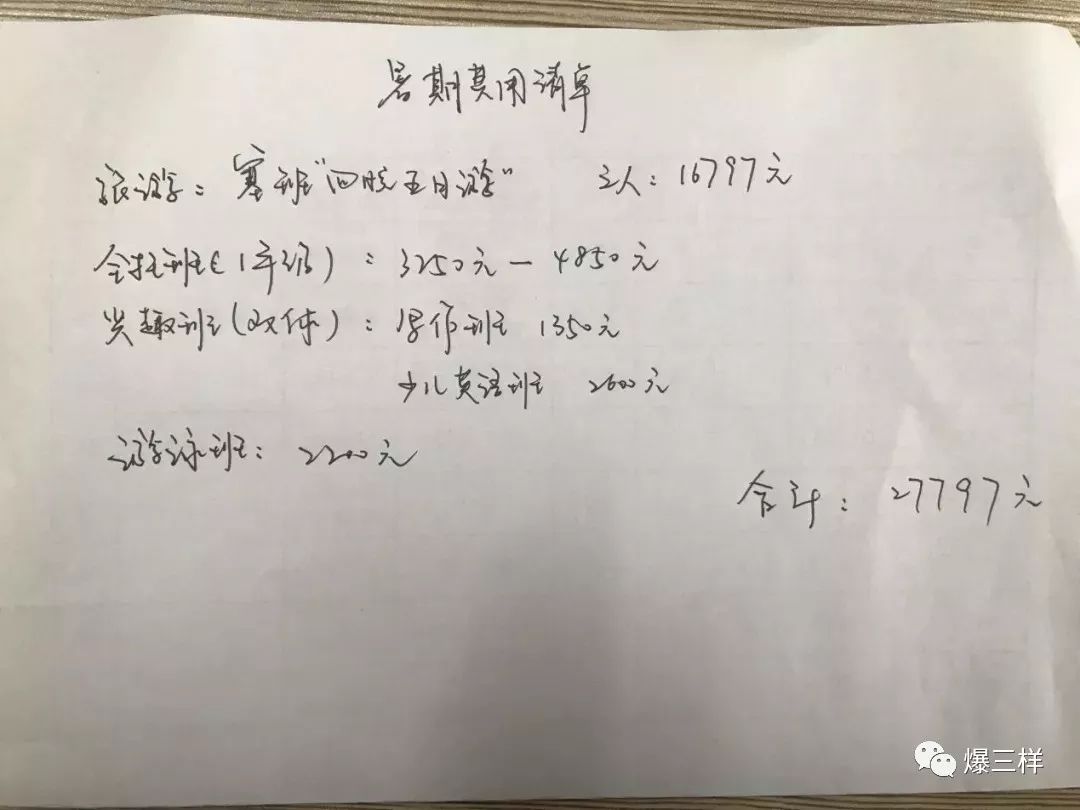 暑期费用清单
旅游：塞班“四晚五日游” 三人：16797元
全托班（1年级）：3250元—4850元
兴趣班（双休）：写作班 1350元
少儿英语班 2600元
游泳班：2200元
合计：27797元
爆三样